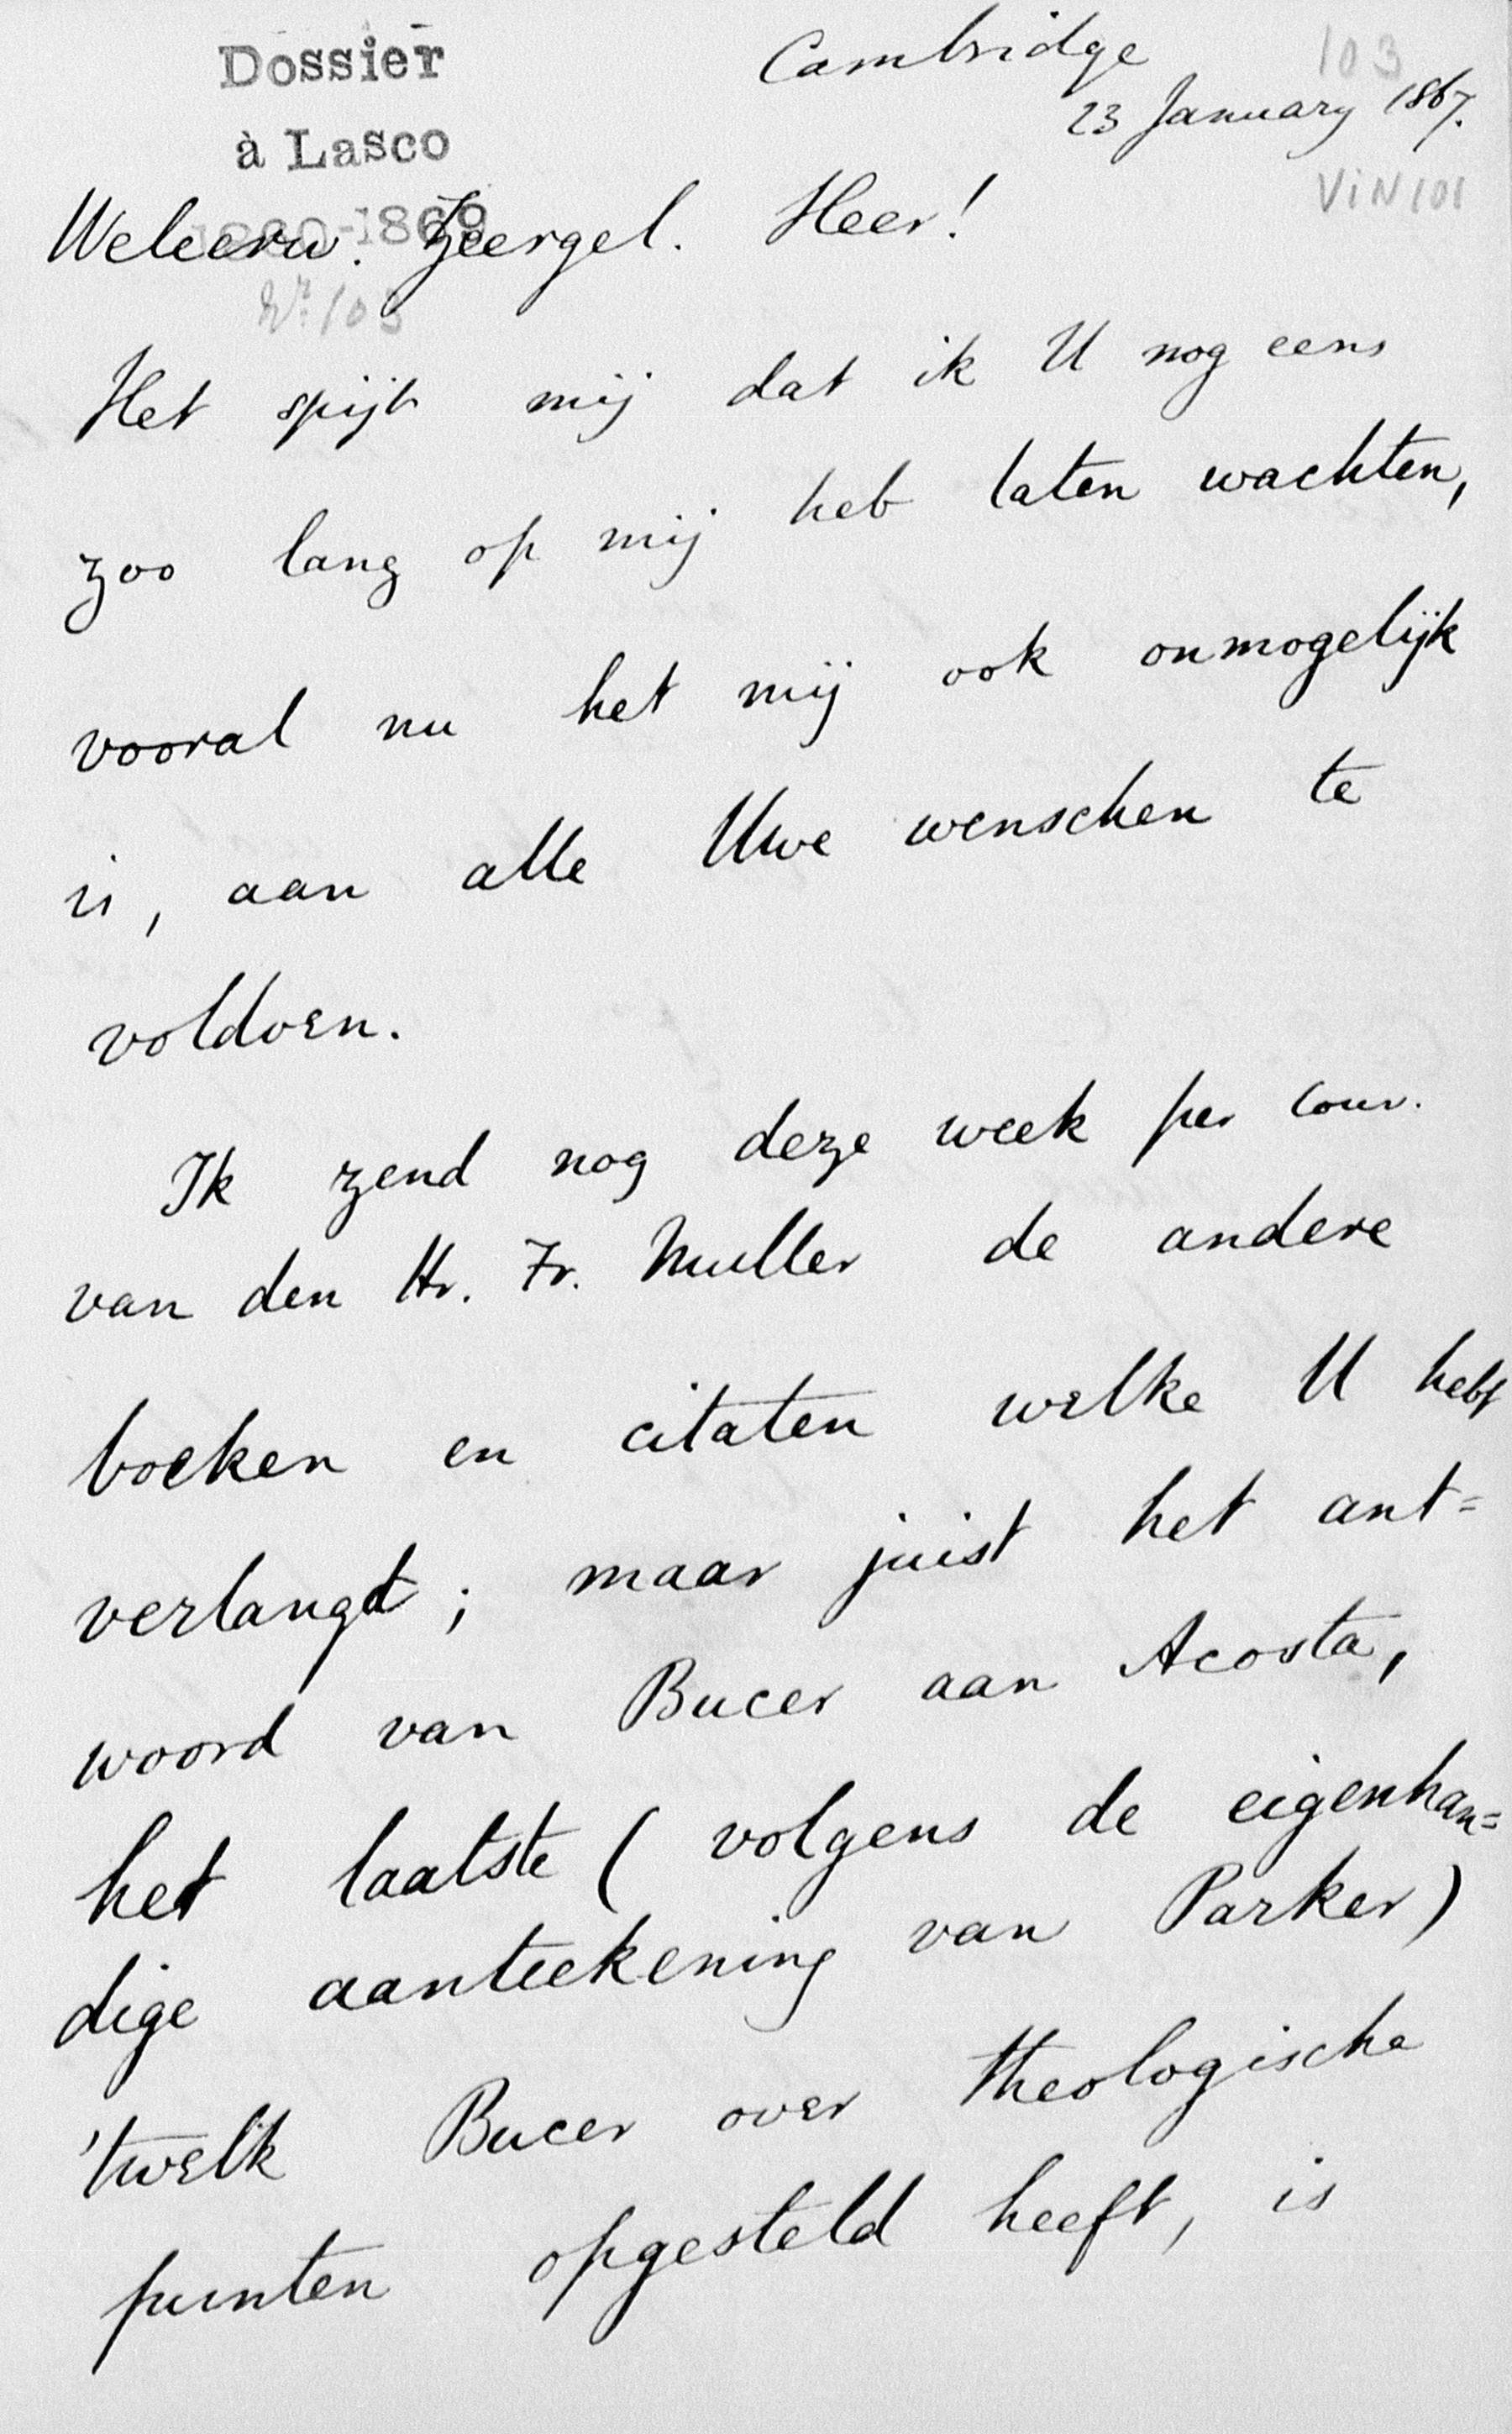 Dossier
à Lasco
1860-1869
Nr. 103
Cambridge
23 January 1867.
103
VIN 101
Weleerw. Zeergel. Heer!
Het spijt mij dat ik U nog eens
zoo lang op mij heb laten wachten,
vooral nu het mij ook onmogelijk
is, aan alle Uwe wenschen te
voldoen.
Ik zend nog deze week per cour.
van den Hr. Fr. Muller de andere
boeken en citaten welke U hebt
verlangd; maar juist het ant=
woord van Bucer aan Acosta,
het laatste (volgens de eigenhan=
dige aanteekening van Parker)
'twelk Bucer over theologische
punten opgesteld heeft, is